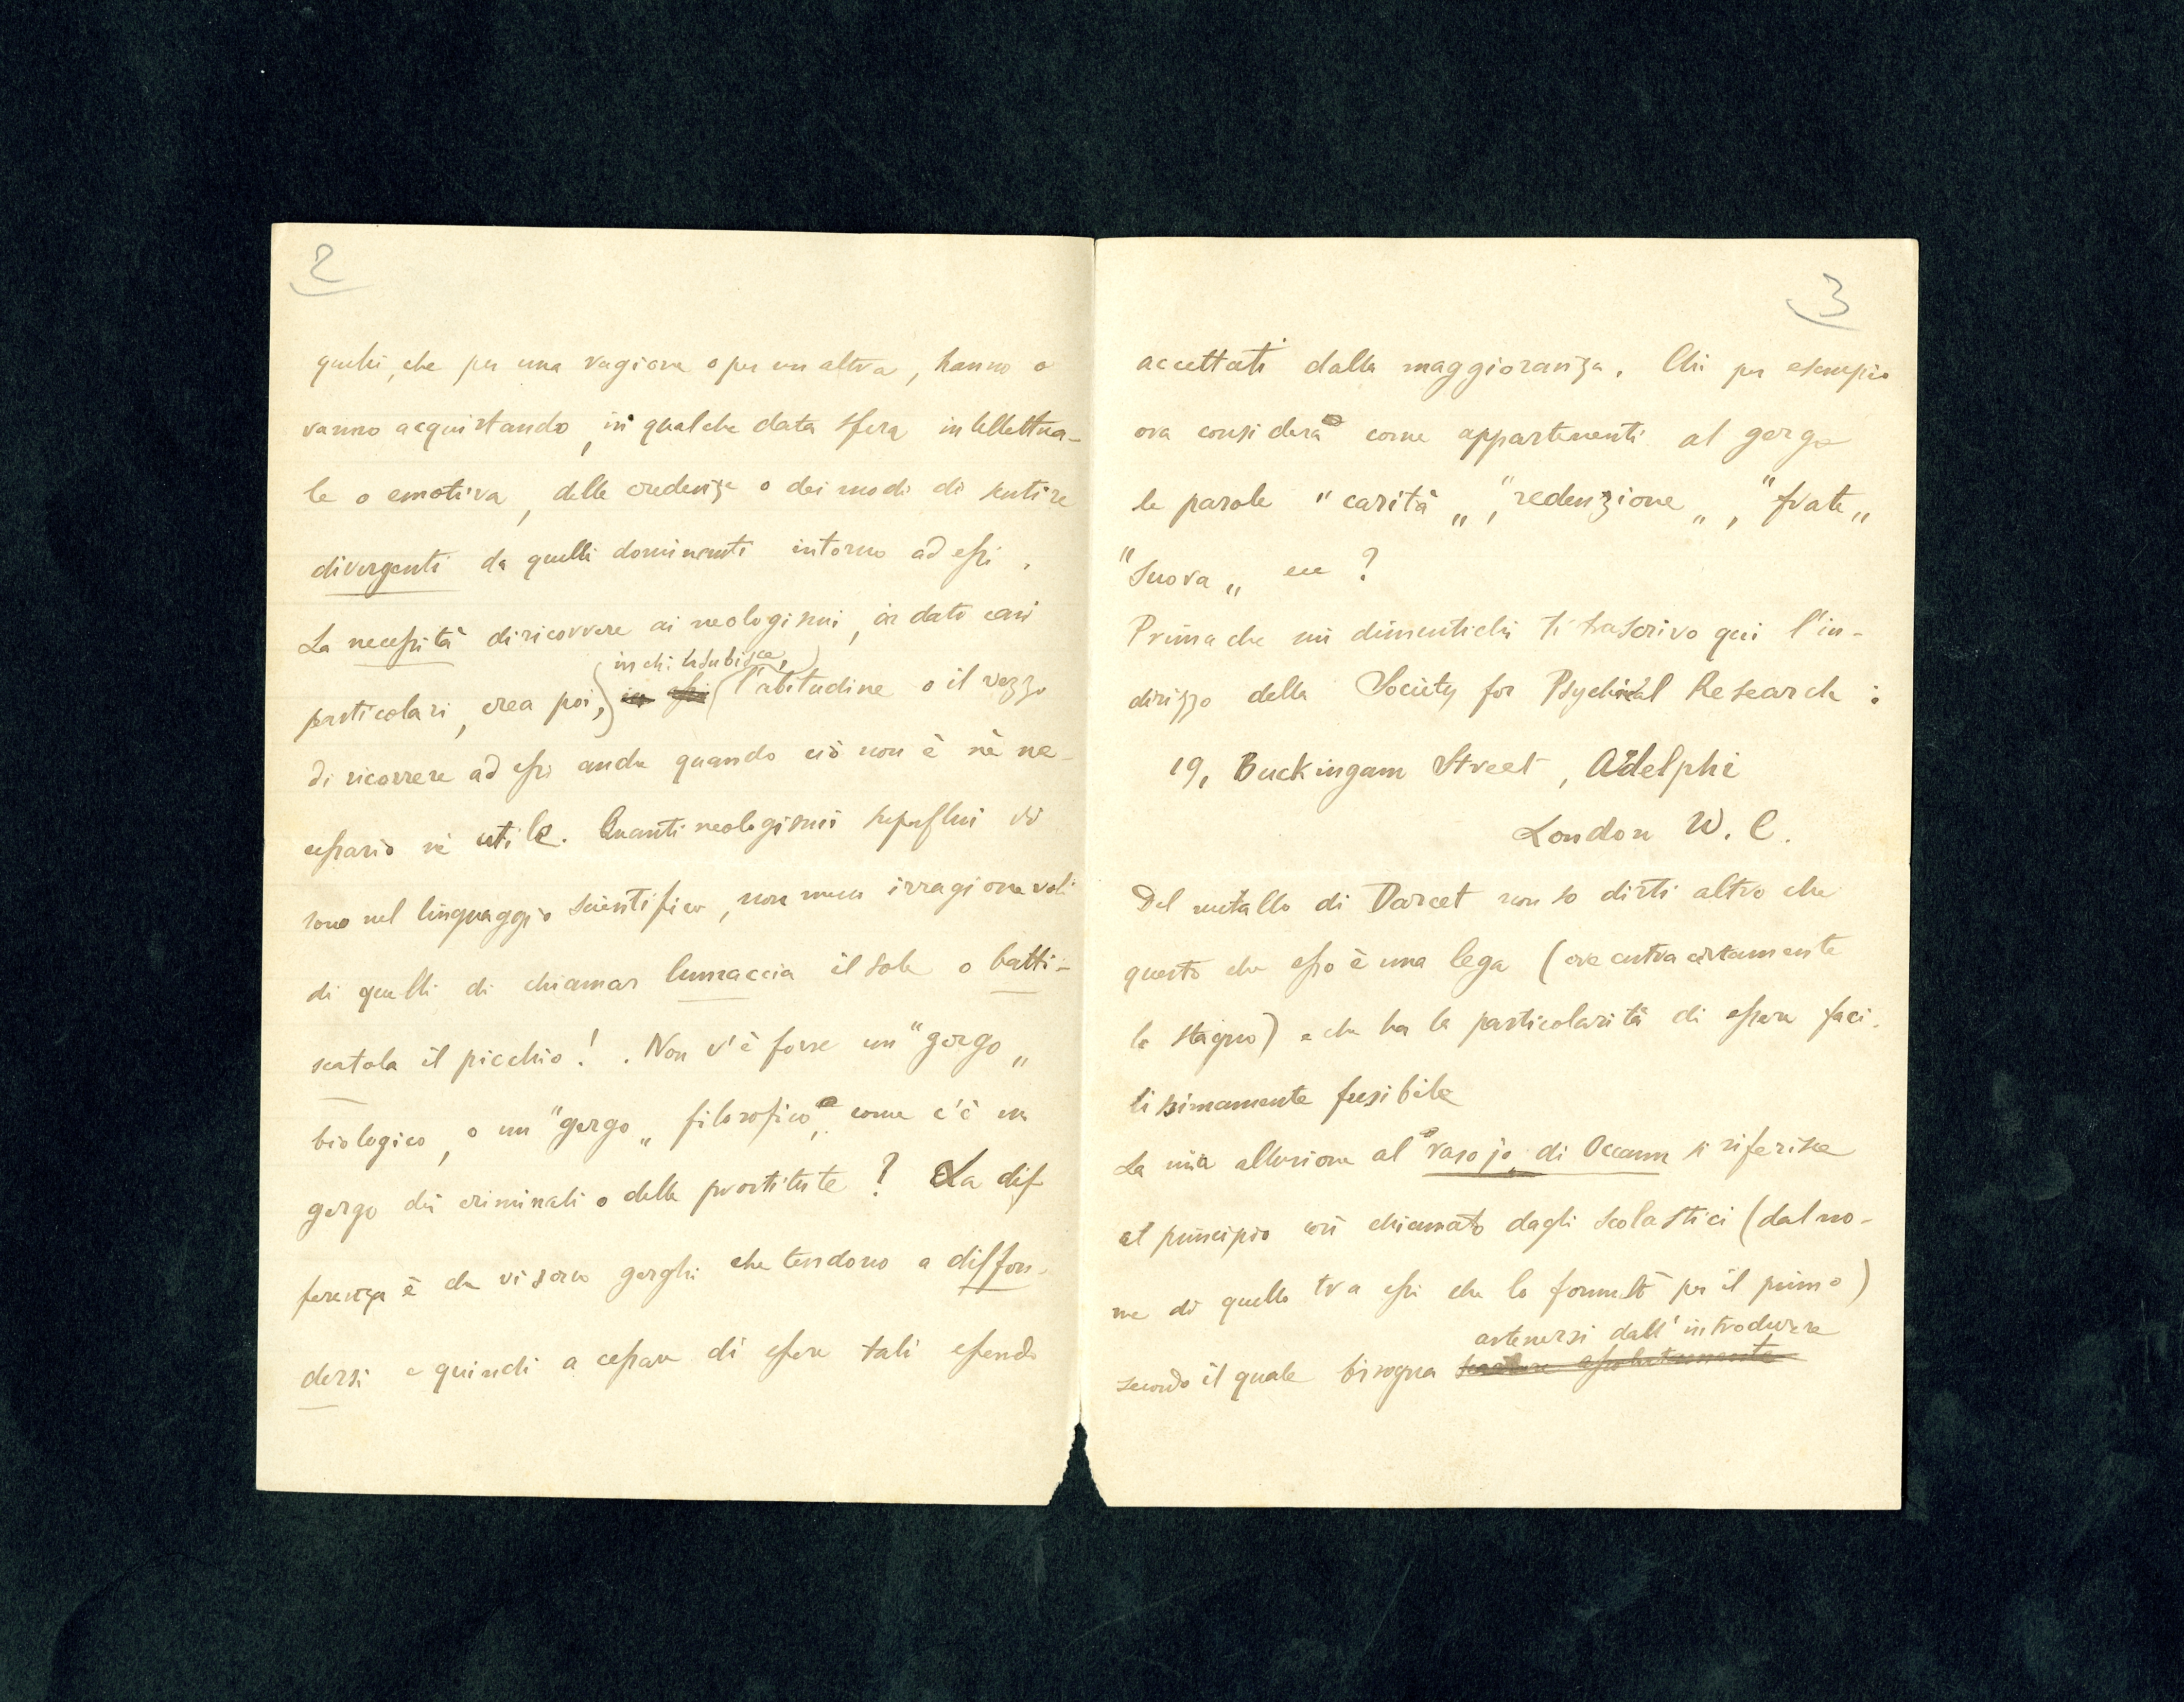 2
quelli, che per una ragione o per un altra, hanno o
vanno acquistando, in qualche data sfera intellettua-
le o emotiva, delle credenze o dei modi di sentire
divergenti da quelli dominanti intorno ad essi.
La necessità di ricorrere ai neologismi, in dati casi
in chi la subisce,
particolari, crea poi, in essi l'abitudine o il vezzo
di ricorrere ad essi anche quando ciò non è nè ne-
cessario nè utile. Quanti neologismi superflui vi
sono nel linguaggio scientifico, non meno irragionevoli
di quelli di chiamar lumaccia il sole o batti-
scatola il picchio! . Non v'è forse un "gergo„
biologico, o un "gergo„ filosofico, come c'è un
gergo dei criminali o delle prostitute? La dif
ferenza è che vi sono gerghi che tendono a diffon-
dersi e quindi a cessare di essere tali essendo
3
accettati dalla maggioranza. Chi per esempio
ora considera come appartenenti al gergo
le parole "carità„, "redenzione„, "frate„
"suora„ ecc ?
Prima che mi dimentichi ti trascrivo qui l'in-
dirizzo della Society for Psychical Research :
19, Buckingam Street, Adelphi
London W. C.
Del metallo di Darcet non so dirti altro che
questo che esso è una lega (ove entra certamente
lo stagno) e che ha la particolarità di essere faci-
lissimamente fusibile
La mia allusione al "rasojo„ di Occam si riferisce
al principio così chiamato dagli scolastici (dal no-
me di quello tra essi che lo formulò per il primo)
astenersi dall'introdurre
secondo il quale bisogna assolutamente